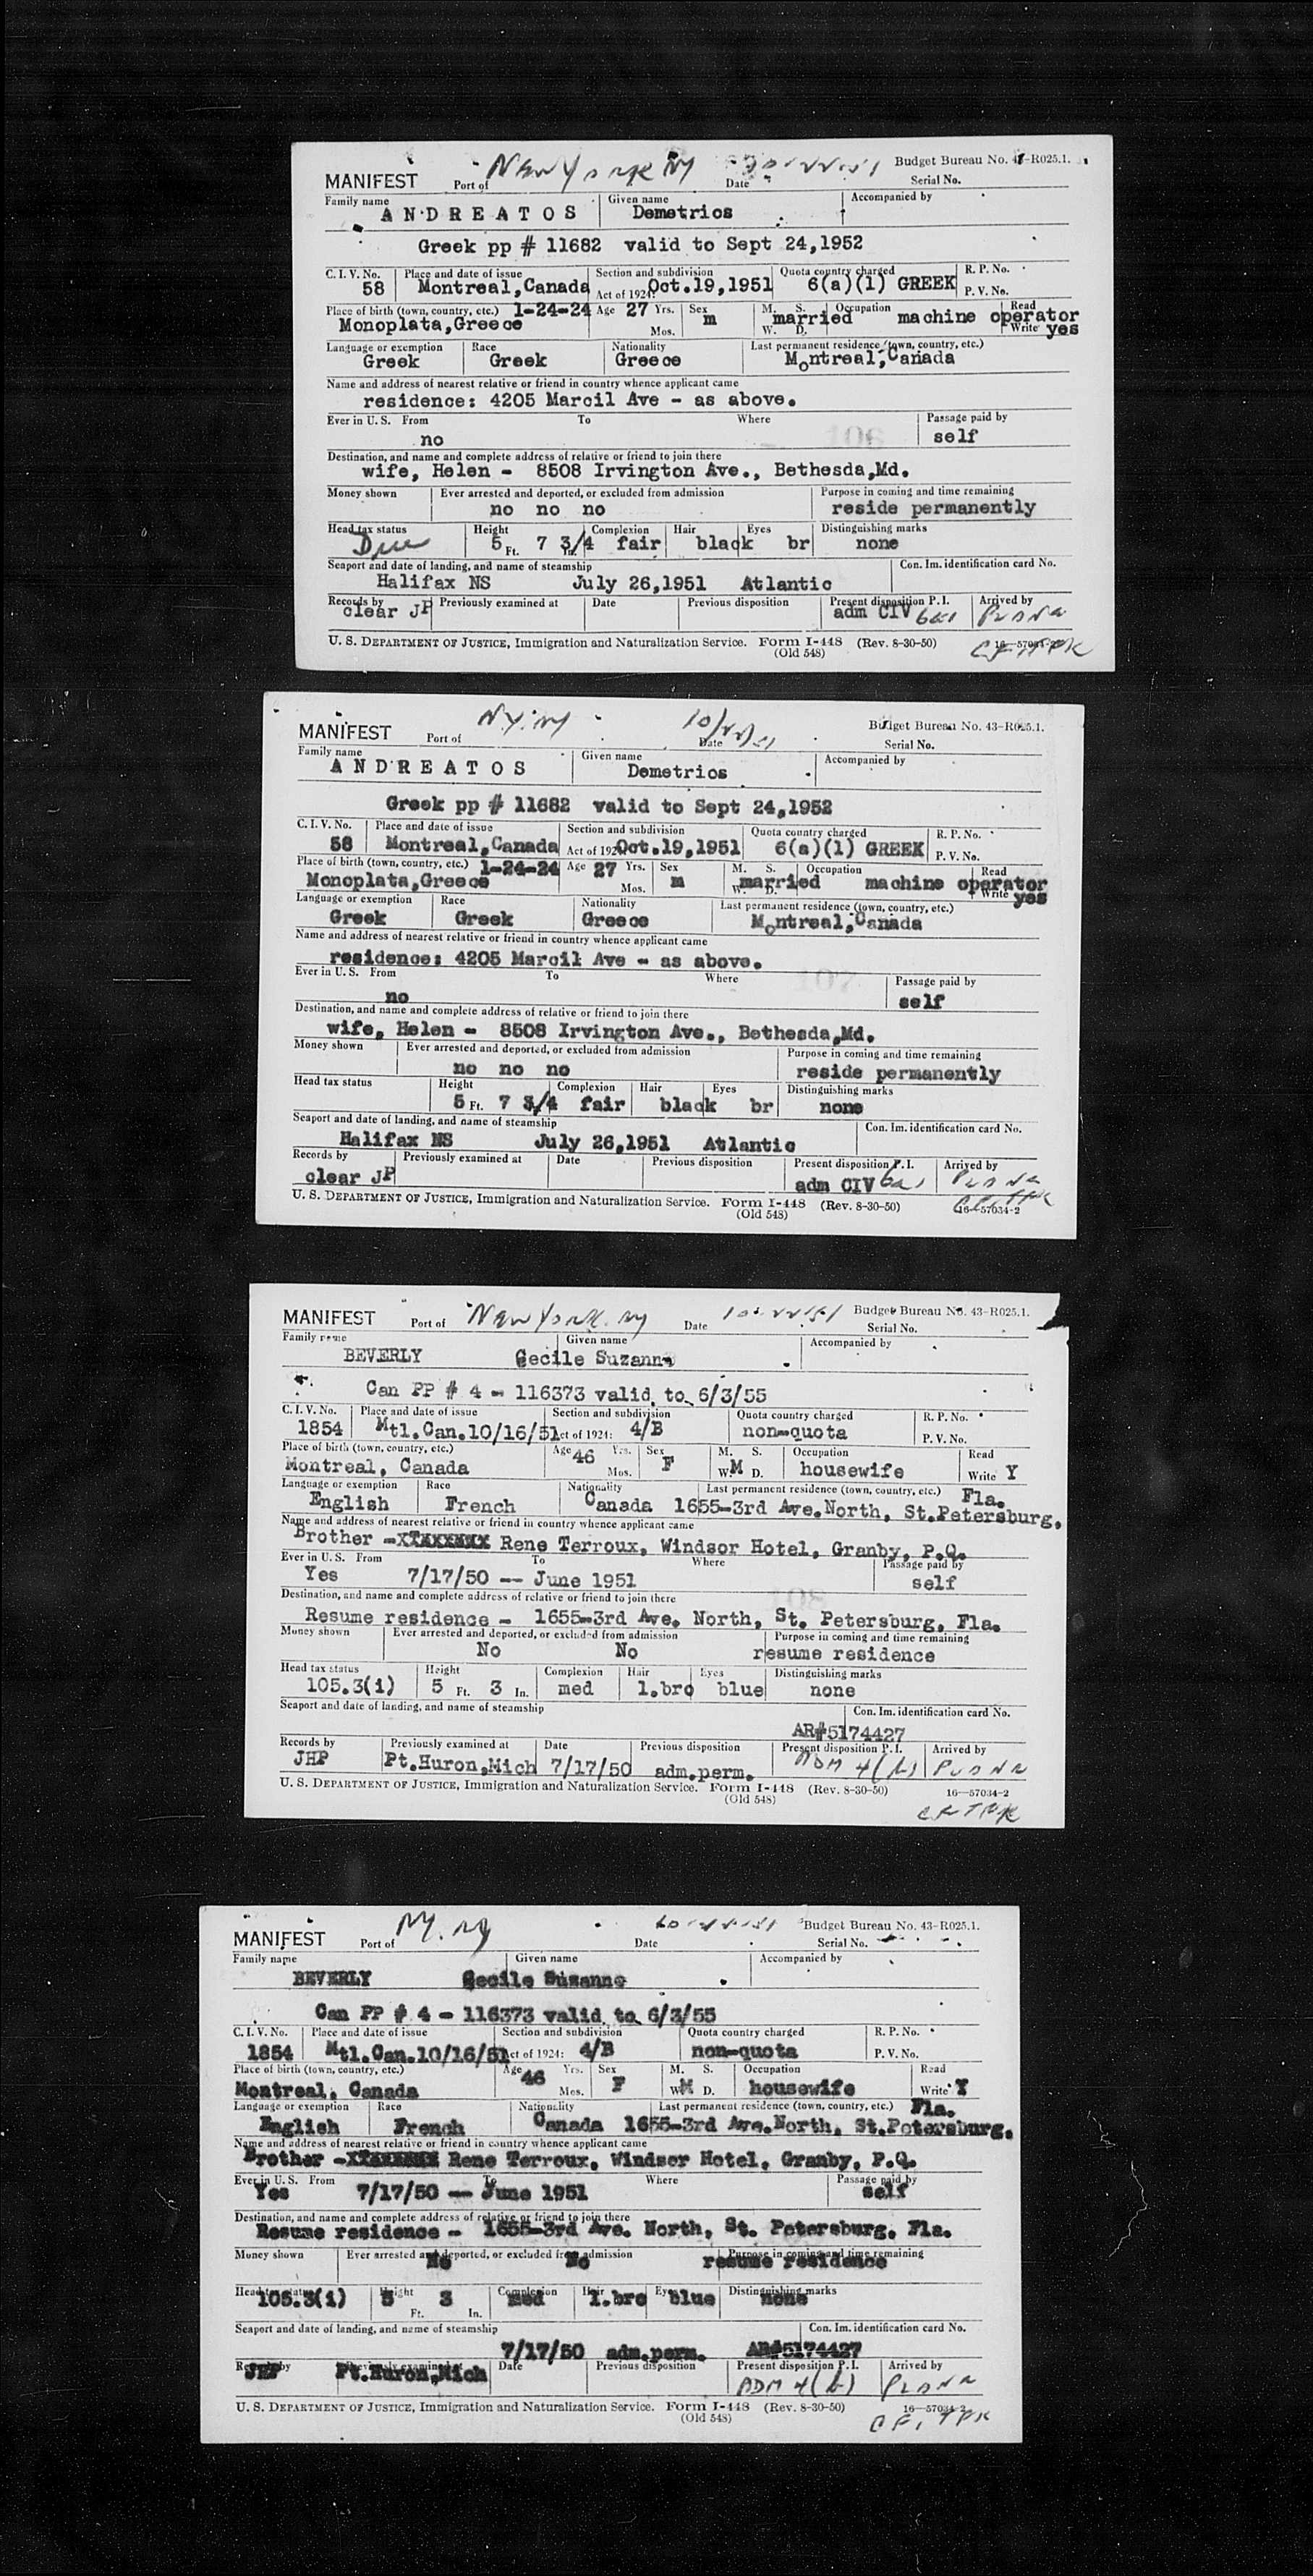 New York NY 10-22-51 Budget Bureau No. 43-R025.1.
MANIFEST Port of Date Serial No.
Family name Given name Accompanied by
ANDREATOS Demetrios
Greek pp # 11682 valid to Sept 24,1952
C. I. V. No. Place and date of issue Section and subdivision Quota country charged R. P. No.
58 Montreal,Canada Act of 1924: Oct.19,1951 6(a)(1) GREEK P. V. No.
Place of birth (town, country, etc.) 1-24-24 Age 27 Yrs. Sex M. S. Occupation Read
Monoplata,Greece Mos. m W. D. married machine operator Write yes
Language or exemption Race Nationality Last permanent residence (town, country, etc.)
Greek Greek Greece Montreal,Canada
Name and address of nearest relative or friend in country whence applicant came
residence: 4205 Marcil Ave - as above.
Ever in U. S. From To Where Passage paid by
no 106 self
Destination, and name and complete address of relative or friend to join there
wife, Helen - 8508 Irvington Ave., Bethesda,Md.
Money shown Ever arrested and deported, or excluded from admission Purpose in coming and time remaining
no no no reside permanently
Head tax status Height Complexion Hair Eyes Distinguishing marks
Due 5 Ft. 7 3/4 In. fair black br none
Seaport and date of landing, and name of steamship Con. Im. identification card No.
Halifax NS July 26,1951 Atlantic
Records by Previously examined at Date Previous disposition Present disposition P. I. Arrived by
clear JP adm CIV
U. S. DEPARTMENT OF JUSTICE, Immigration and Naturalization Service. Form I-448 (Rev. 8-30-50) 16—57034-2
(Old 548)
N.Y. NY 10/22/51 Budget Bureau No. 43-R025.1.
MANIFEST Port of Date Serial No.
Family name Given name Accompanied by
ANDREATOS Demetrios
Greek pp # 11682 valid to Sept 24,1952
C. I. V. No. Place and date of issue Section and subdivision Quota country charged R. P. No.
58 Montreal,Canada Act of 1924: Oct.19,1951 6(a)(1) GREEK P. V. No.
Place of birth (town, country, etc.) 1-24-24 Age 27 Yrs. Sex M. S. Occupation Read
Monoplata,Greece Mos. m W. D. married machine operator Write yes
Language or exemption Race Nationality Last permanent residence (town, country, etc.)
Greek Greek Greece Montreal,Canada
Name and address of nearest relative or friend in country whence applicant came
residence: 4205 Marcil Ave - as above.
Ever in U. S. From To Where Passage paid by
no 107 self
Destination, and name and complete address of relative or friend to join there
wife, Helen - 8508 Irvington Ave., Bethesda,Md.
Money shown Ever arrested and deported, or excluded from admission Purpose in coming and time remaining
no no no reside permanently
Head tax status Height Complexion Hair Eyes Distinguishing marks
5 Ft. 7 3/4 fair black br none
Seaport and date of landing, and name of steamship Con. Im. identification card No.
Halifax NS July 26,1951 Atlantic
Records by Previously examined at Date Previous disposition Present disposition P. I. Arrived by
clear JP adm CIV
U. S. DEPARTMENT OF JUSTICE, Immigration and Naturalization Service. Form I-448 (Rev. 8-30-50) 16—57034-2
(Old 548)
New York. NY 10-22-51 Budget Bureau No. 43-R025.1.
MANIFEST Port of Date Serial No.
Family name Given name Accompanied by
BEVERLY Cecile Suzanne
Can PP # 4 - 116373 valid to 6/3/55
C. I. V. No. Place and date of issue Section and subdivision Quota country charged R. P. No.
1854 Mtl.Can.10/16/51 Act of 1924: 4/B non-quota P. V. No.
Place of birth (town, country, etc.) Age 46 Yrs. Sex M. S. Occupation Read
Montreal, Canada Mos. F W. M D. housewife Write Y
Language or exemption Race Nationality Last permanent residence (town, country, etc.) Fla.
English French Canada 1655-3rd Ave.North, St.Petersburg,
Name and address of nearest relative or friend in country whence applicant came
Brother - Rene Terroux, Windsor Hotel, Granby, P.Q.
Ever in U. S. From To Where Passage paid by
Yes 7/17/50 -- June 1951 108 self
Destination, and name and complete address of relative or friend to join there
Resume residence - 1655-3rd Ave. North, St. Petersburg, Fla.
Money shown Ever arrested and deported, or excluded from admission Purpose in coming and time remaining
No No resume residence
Head tax status Height Complexion Hair Eyes Distinguishing marks
105.3(i) 5 Ft. 3 In. med l.bro blue none
Seaport and date of landing, and name of steamship Con. Im. identification card No.
AR#5174427
Records by Previously examined at Date Previous disposition Present disposition P. I. Arrived by
JHP Pt.Huron,Mich 7/17/50 adm.perm. ADM 4(b)
U. S. DEPARTMENT OF JUSTICE, Immigration and Naturalization Service. Form I-448 (Rev. 8-30-50) 16—57034-2
(Old 548)
NY. NY 10-22-51 Budget Bureau No. 43-R025.1.
MANIFEST Port of Date Serial No.
Family name Given name Accompanied by
BEVERLY Cecile Suzanne
Can PP # 4 - 116373 valid to 6/3/55
C. I. V. No. Place and date of issue Section and subdivision Quota country charged R. P. No.
1854 Mtl.Can.10/16/51 Act of 1924: 4/B non-quota P. V. No.
Place of birth (town, country, etc.) Age 46 Yrs. Sex M. S. Occupation Read
Montreal, Canada Mos. F W. M D. housewife Write Y
Language or exemption Race Nationality Last permanent residence (town, country, etc.) Fla.
English French Canada 1655-3rd Ave.North, St.Petersburg,
Name and address of nearest relative or friend in country whence applicant came
Brother - Rene Terroux, Windsor Hotel, Granby, P.Q.
Ever in U. S. From To Where Passage paid by
Yes 7/17/50 -- June 1951 self
Destination, and name and complete address of relative or friend to join there
Resume residence - 1655-3rd Ave. North, St. Petersburg, Fla.
Money shown Ever arrested and deported, or excluded from admission Purpose in coming and time remaining
No No resume residence
Head tax status Height Complexion Hair Eyes Distinguishing marks
105.3(i) 5 Ft. 3 In. med l.bro blue none
Seaport and date of landing, and name of steamship Con. Im. identification card No.
7/17/50 adm.perm. AR#5174427
Records by Previously examined at Date Previous disposition Present disposition P. I. Arrived by
JHP Pt.Huron,Mich ADM 4(b)
U. S. DEPARTMENT OF JUSTICE, Immigration and Naturalization Service. Form I-448 (Rev. 8-30-50) 16—57034-2
(Old 548)